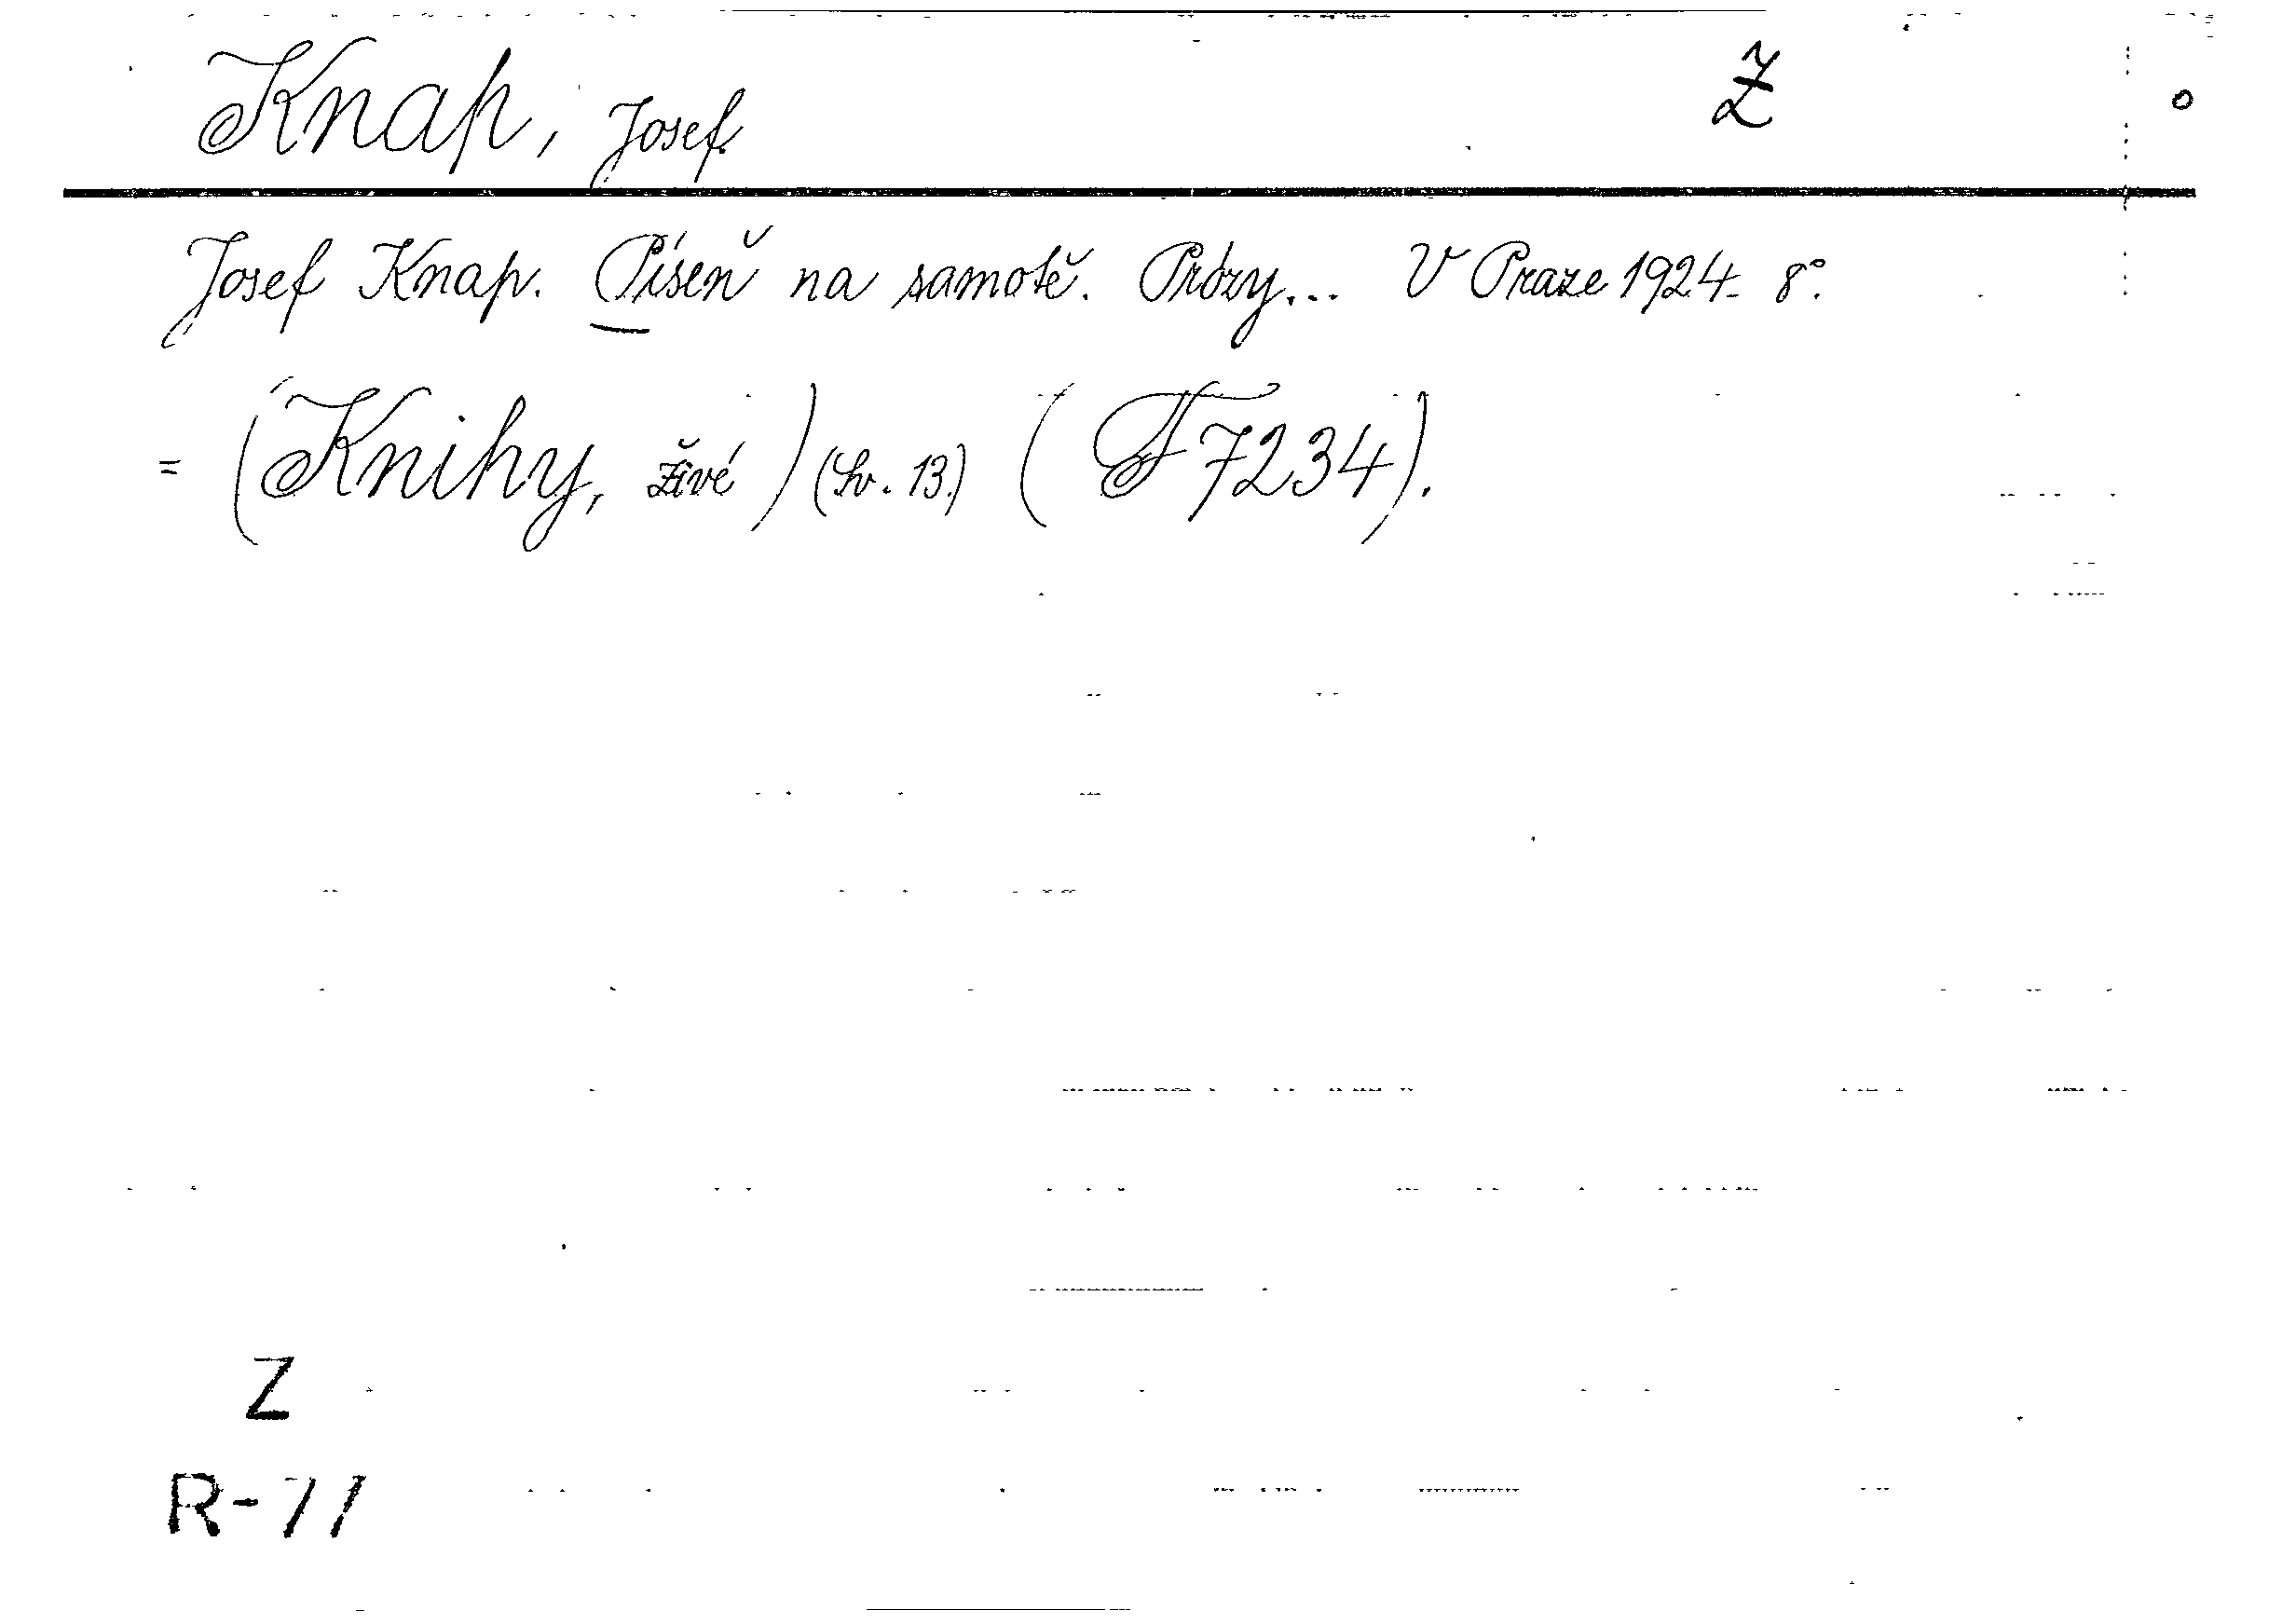 Knap, Josef. Ž
Josef Knap. Píseň na samotě. Prózy... V Praze 1924. 8°.
= (Knihy, živé) (Sv. 13.) (F 7234).
Z
R-71